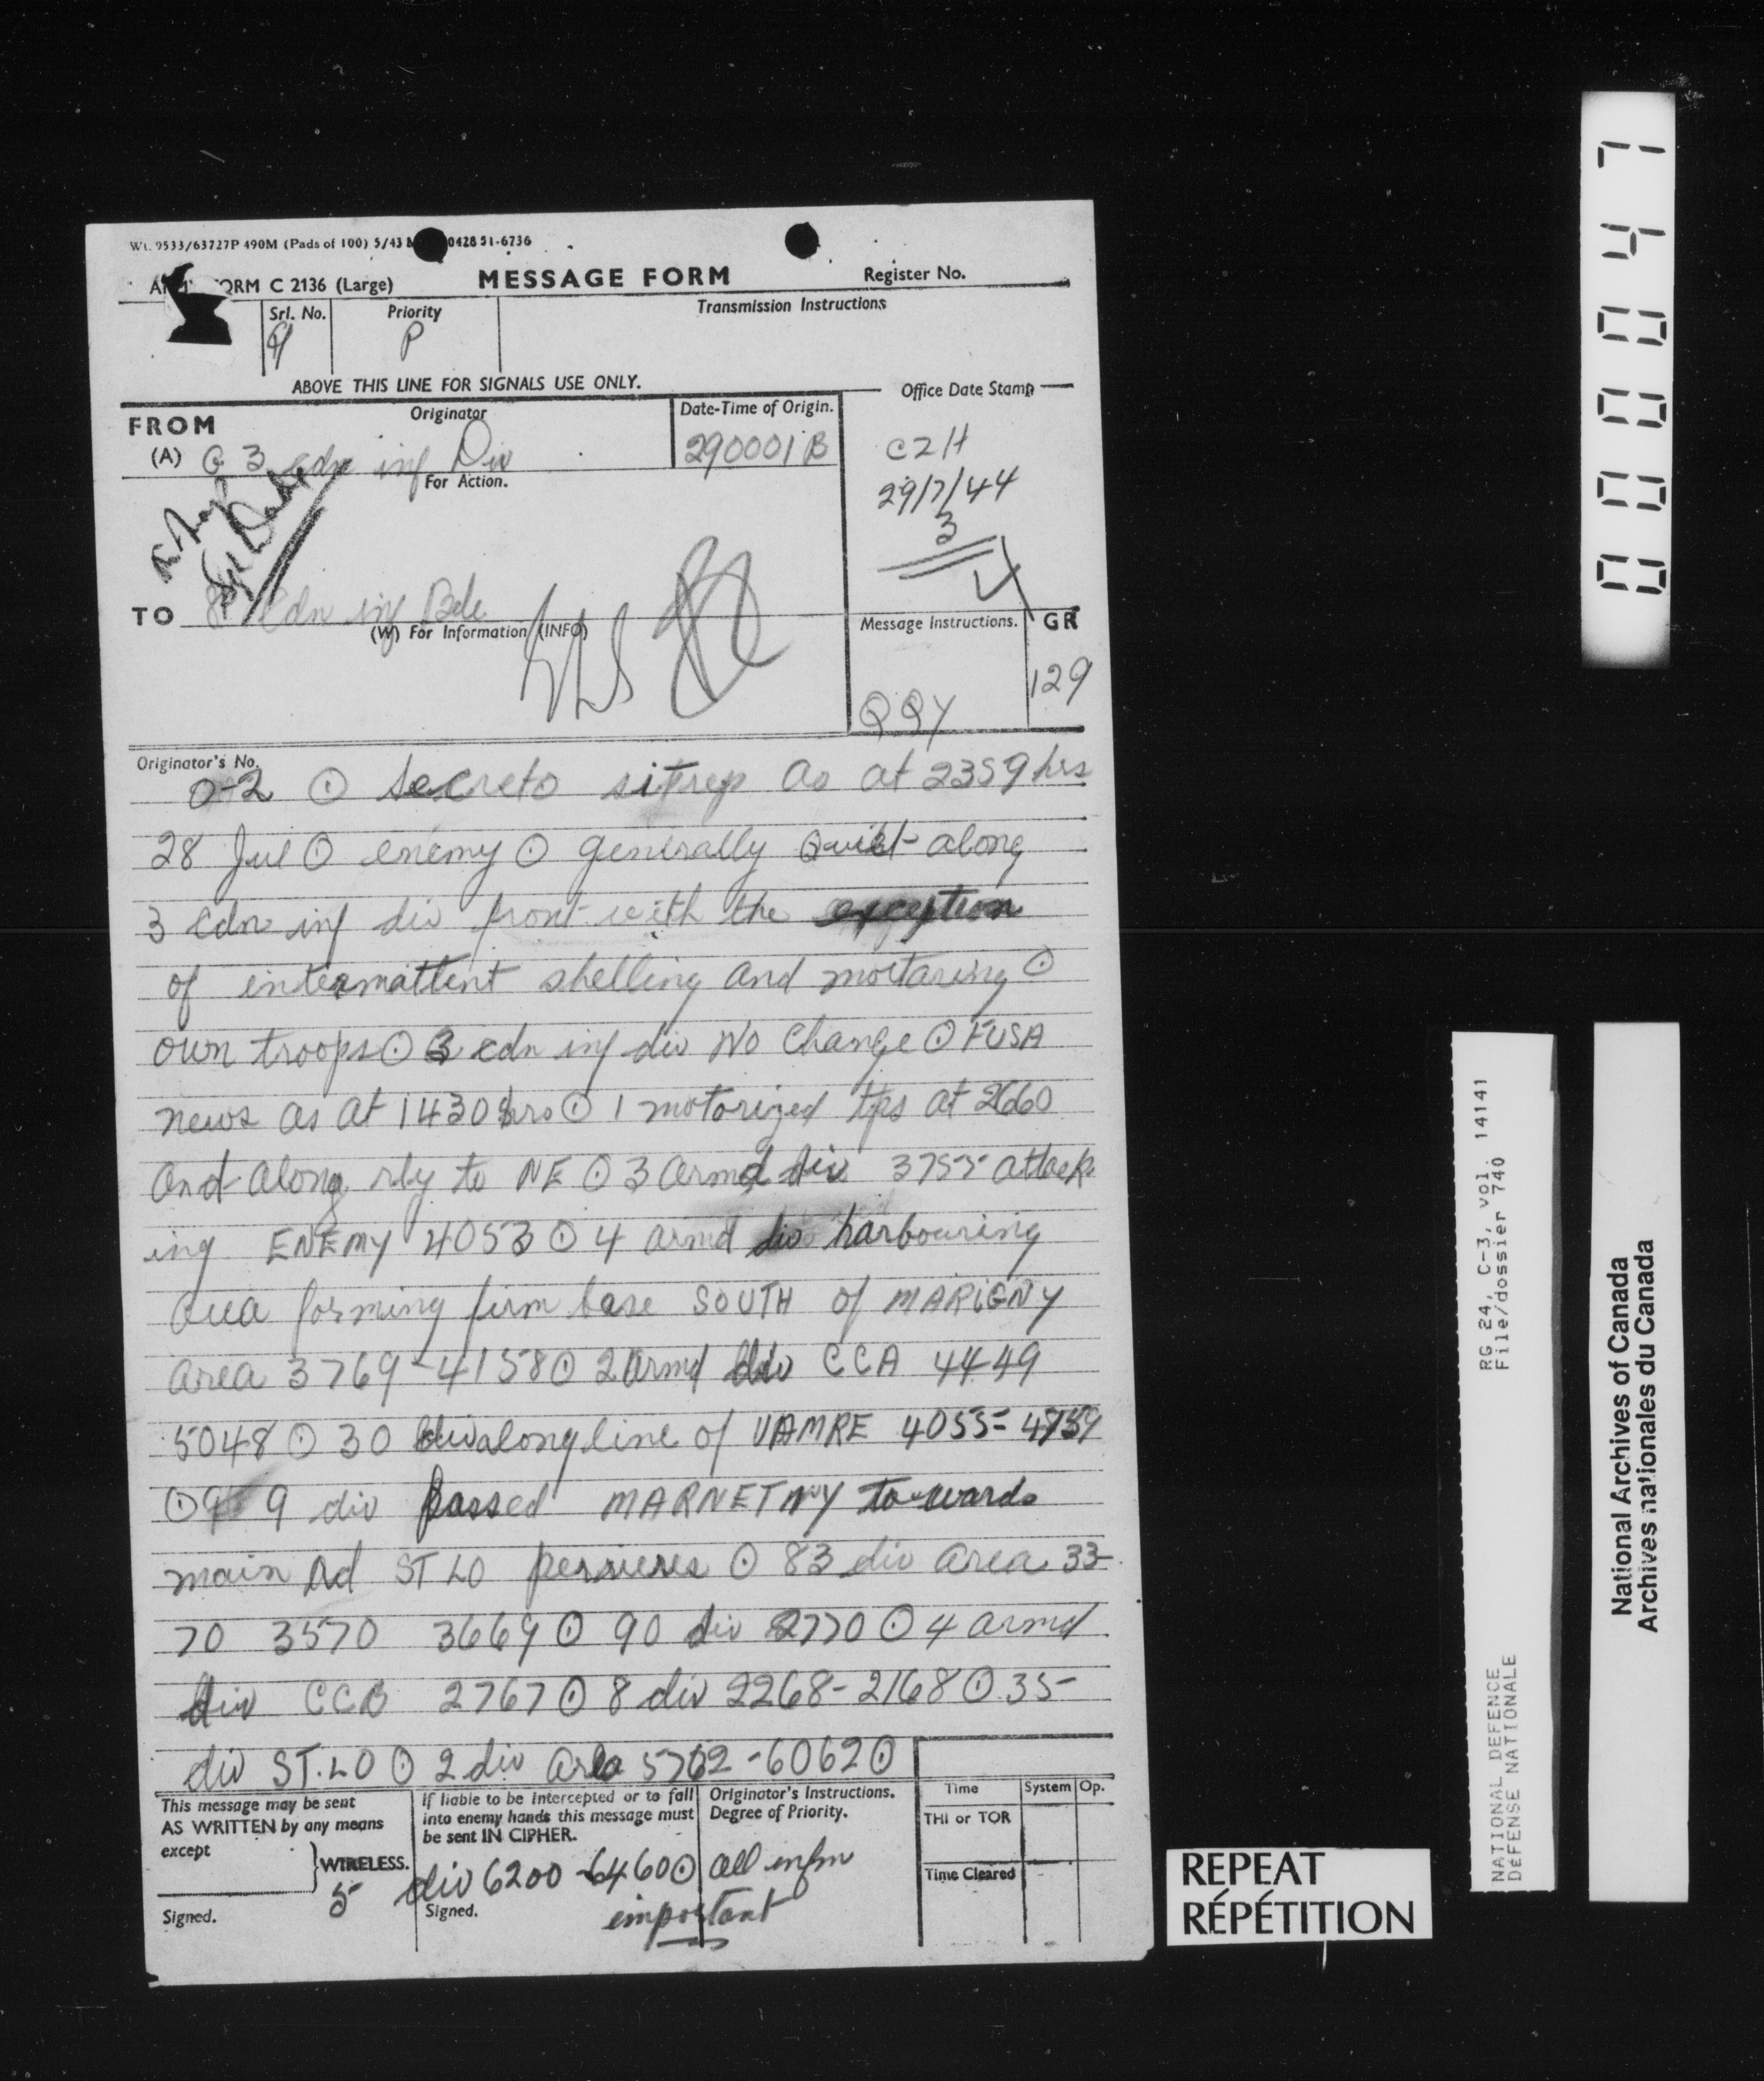 Wt. 9533/63727P 490M (Pads of 100) 5/43 0428 51-6736
ORM C 2136 (Large) MESSAGE FORM Register No.
Srl. No. Priority Transmission Instructions
P
ABOVE THIS LINE FOR SIGNALS USE ONLY.
Office Date Stamp
FROM Originator Date-Time of Origin.
(A) G 3 cdn inf Div 290001B
For Action.
CZH
29/7/44
3
TO 8 Cdn inf Bde
(W) For Information (INFO)
Message Instructions. GR
QQY 129
Originator's No.
O-2 ⊙ Secreto sitrep as at 2359 hrs
28 Jul ⊙ enemy ⊙ generally Quiet along
3 cdn inf div front with the exception
of intermattent shelling and mortaring ⊙
own troops ⊙ 3 cdn inf div No Change ⊙ FUSA
news as at 1430 hrs ⊙ 1 motorized tps at 2660
and along rly to NE ⊙ 3 armd div 3755 attack
ing ENEMY 4053 ⊙ 4 armd div harbouring
area forming firm base SOUTH of MARIGNY
area 3769-4158 ⊙ 2 armd div CCA 4449
5048 ⊙ 30 div along line of VAMRE 4055-4759
⊙ 9 div passed MARNETNY towards
main rd ST LO perrieres ⊙ 83 div area 33
70 3570 3669 ⊙ 90 div 2770 ⊙ 4 armd
div CCB 2767 ⊙ 8 div 2268-2168 ⊙ 35
div ST.LO ⊙ 2 div area 5762-6062 ⊙
This message may be sent
AS WRITTEN by any means
except
WIRELESS.
Signed.
If liable to be intercepted or to fall
into enemy hands this message must
be sent IN CIPHER.
5 div 6200-6460 ⊙ all infm
important
Signed.
Originator's Instructions.
Degree of Priority.
Time System Op.
THI or TOR
Time Cleared
REPEAT
RÉPÉTITION
000047
RG 24, C-3, vol. 14141
File/dossier 740
NATIONAL DEFENCE
DÉFENSE NATIONALE
National Archives of Canada
Archives nationales du Canada